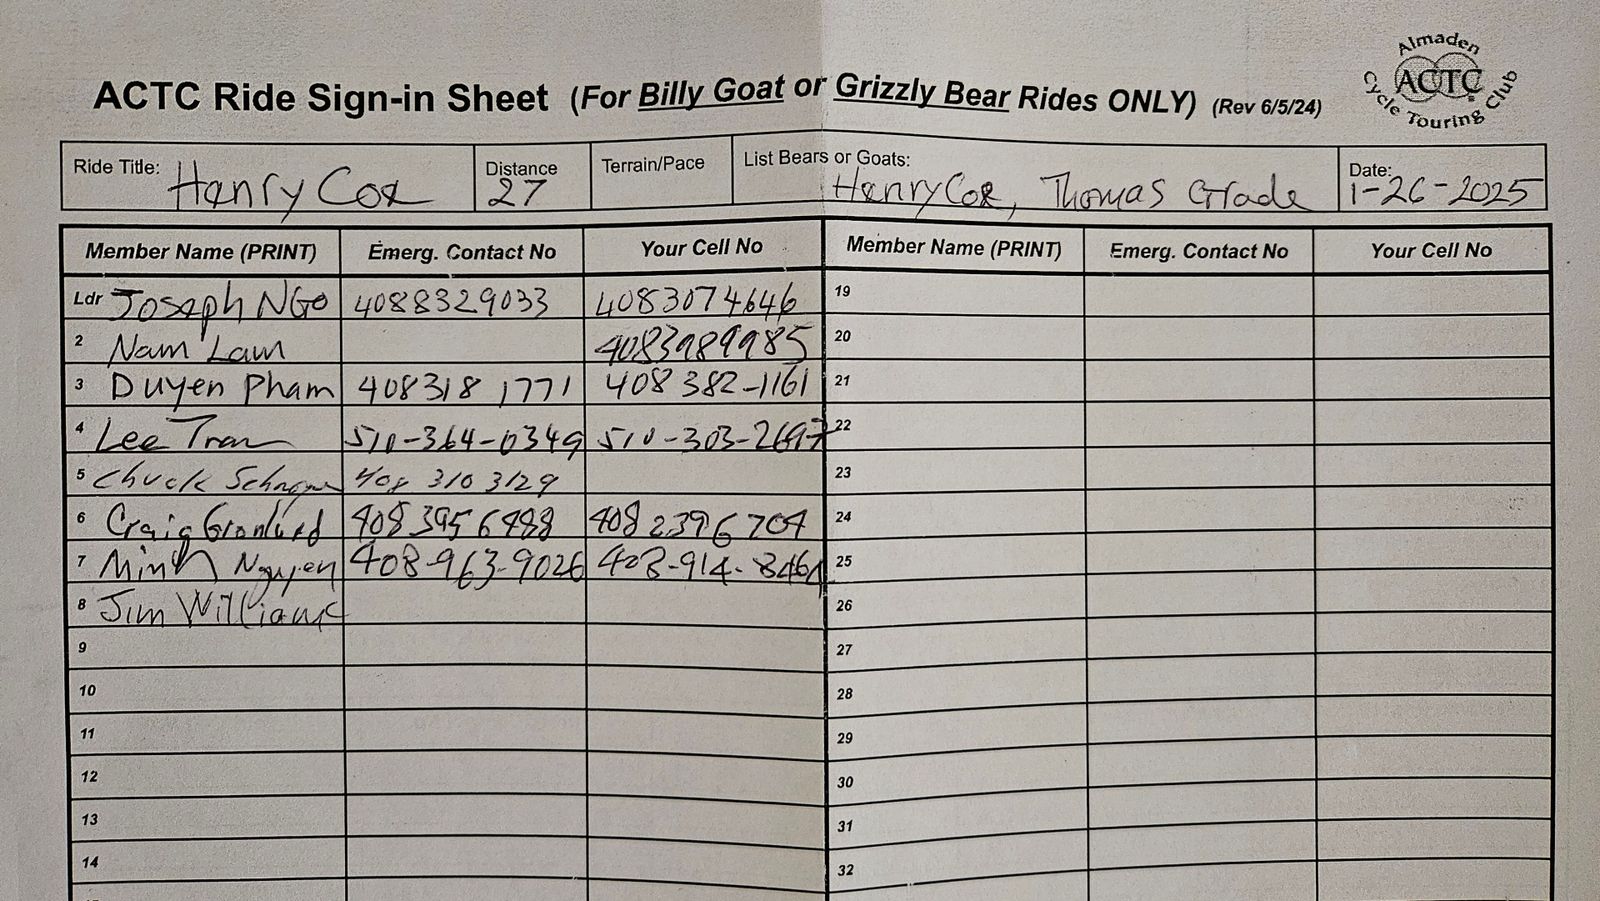 Almaden
ACTC
Cycle Touring Club
ACTC Ride Sign-in Sheet (For Billy Goat or Grizzly Bear Rides ONLY) (Rev 6/5/24)
Ride Title: Henry Coe Distance 27 Terrain/Pace List Bears or Goats: Henry Coe, Thomas Grade Date: 1-26-2025
Member Name (PRINT) Emerg. Contact No Your Cell No Member Name (PRINT) Emerg. Contact No Your Cell No
Ldr Joseph NGO 4088329033 4083074646 19
2 Nam Lam 4083989985 20
3 Duyen Pham 408318 1771 408 382-1161 21
4 Lee Tran 510-364-0349 510-303-2697 22
5 Chuck 408 310 3129 23
6 Craig 408 395 6488 408 2396704 24
7 Minh Nguyen 408-963-9026 408-914-8464 25
8 Jim Williams 26
9 27
10 28
11 29
12 30
13 31
14 32